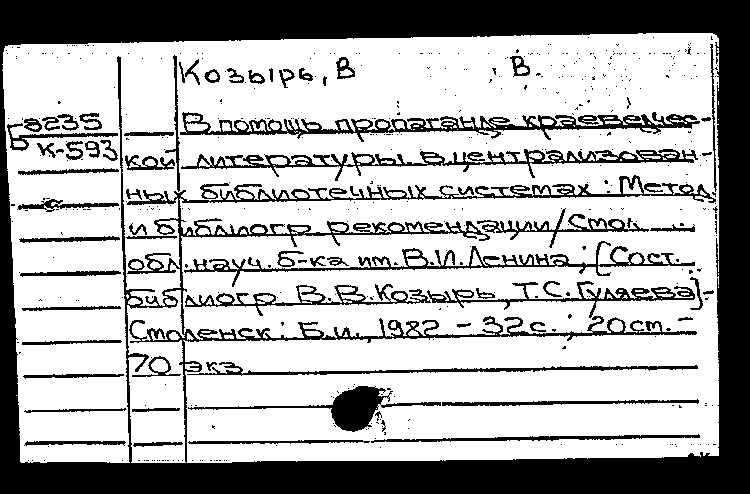 Козырь, В В.
Б 8235
К-593
В помощь пропаганде краеведчес-
кой литературы в централизован-
ных библиотечных системах: Метод.
и библиогр. рекомендации/Смол.
обл. науч. б-ка им. В.И.Ленина; [Сост.
библиогр. В.В.Козырь, Т.С.Гуляева].-
Смоленск: Б.и., 1982 - 32с.; 20см.-
70 экз.